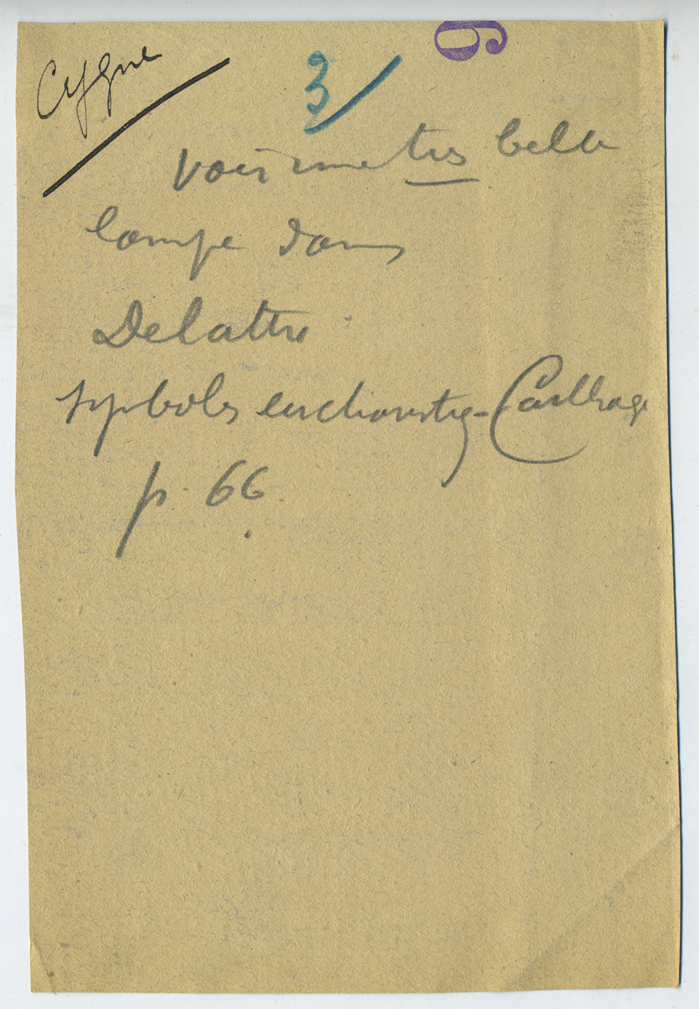 Cygne
3
9
voir une très belle
lampe dans
Delattre
Symboles eucharistiq- Carthage
p. 66